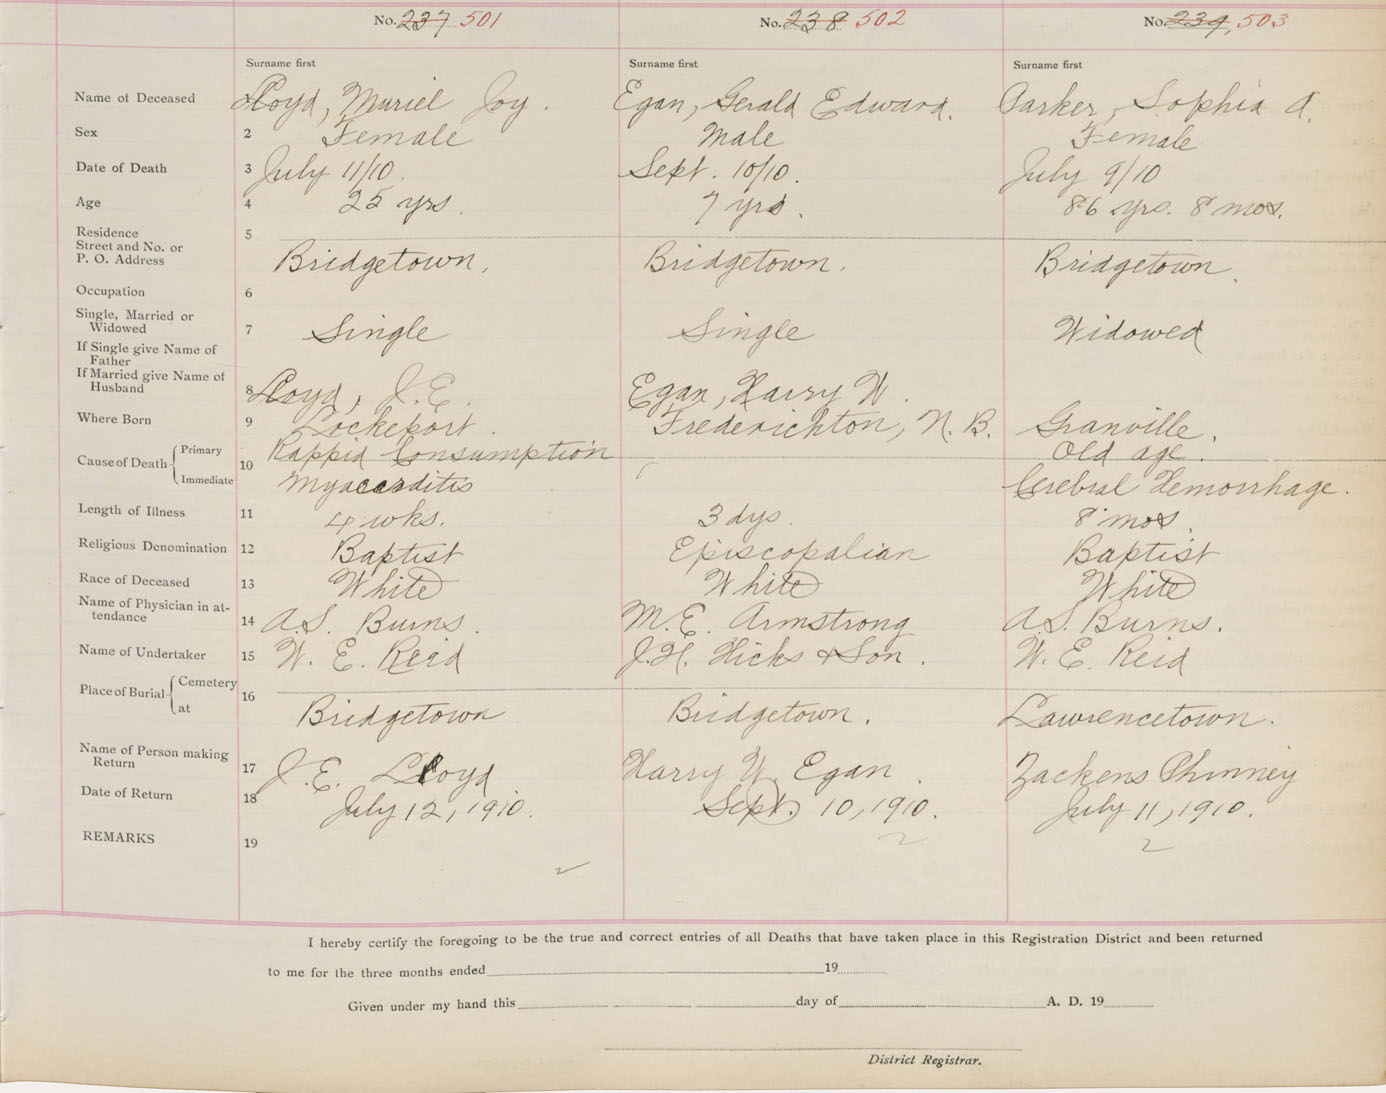 No. 237 501 No. 238 502 No. 239, 503
Surname first Surname first Surname first
Name of Deceased Lloyd, Muriel Joy. Egan, Gerald Edward. Parker, Sophia A.
Sex 2 Female Male Female
Date of Death 3 July 11/10. Sept. 10/10. July 9/10
Age 4 25 yrs. 7 yrs. 86 yrs. 8 mos.
Residence
Street and No. or 5
P. O. Address Bridgetown. Bridgetown. Bridgetown.
Occupation 6
Single, Married or
Widowed 7 Single Single Widowed
If Single give Name of
Father
If Married give Name of
Husband 8 Lloyd, J.E. Egan, Harry W.
Where Born 9 Lockeport. Frederichton, N.B. Granville.
Cause of Death Primary 10 Rappid Consumption Old age.
Immediate Myacarditis Cerebral Hemorrhage.
Length of Illness 11 4 wks. 3 dys. 8 mos.
Religious Denomination 12 Baptist Episcopalian Baptist
Race of Deceased 13 White White White
Name of Physician in at-
tendance 14 A.S. Burns. M.E. Armstrong A.S. Burns.
Name of Undertaker 15 W. E. Reid J.H. Hicks & Son. W. E. Reid
Place of Burial Cemetery 16
at Bridgetown Bridgetown. Lawrencetown.
Name of Person making
Return 17 J.E. Lloyd Harry W. Egan. Zackens Phinney
Date of Return 18 July 12, 1910. Sept. 10, 1910. July 11, 1910.
REMARKS 19
I hereby certify the foregoing to be the true and correct entries of all Deaths that have taken place in this Registration District and been returned
to me for the three months ended 19
Given under my hand this day of A. D. 19
District Registrar.